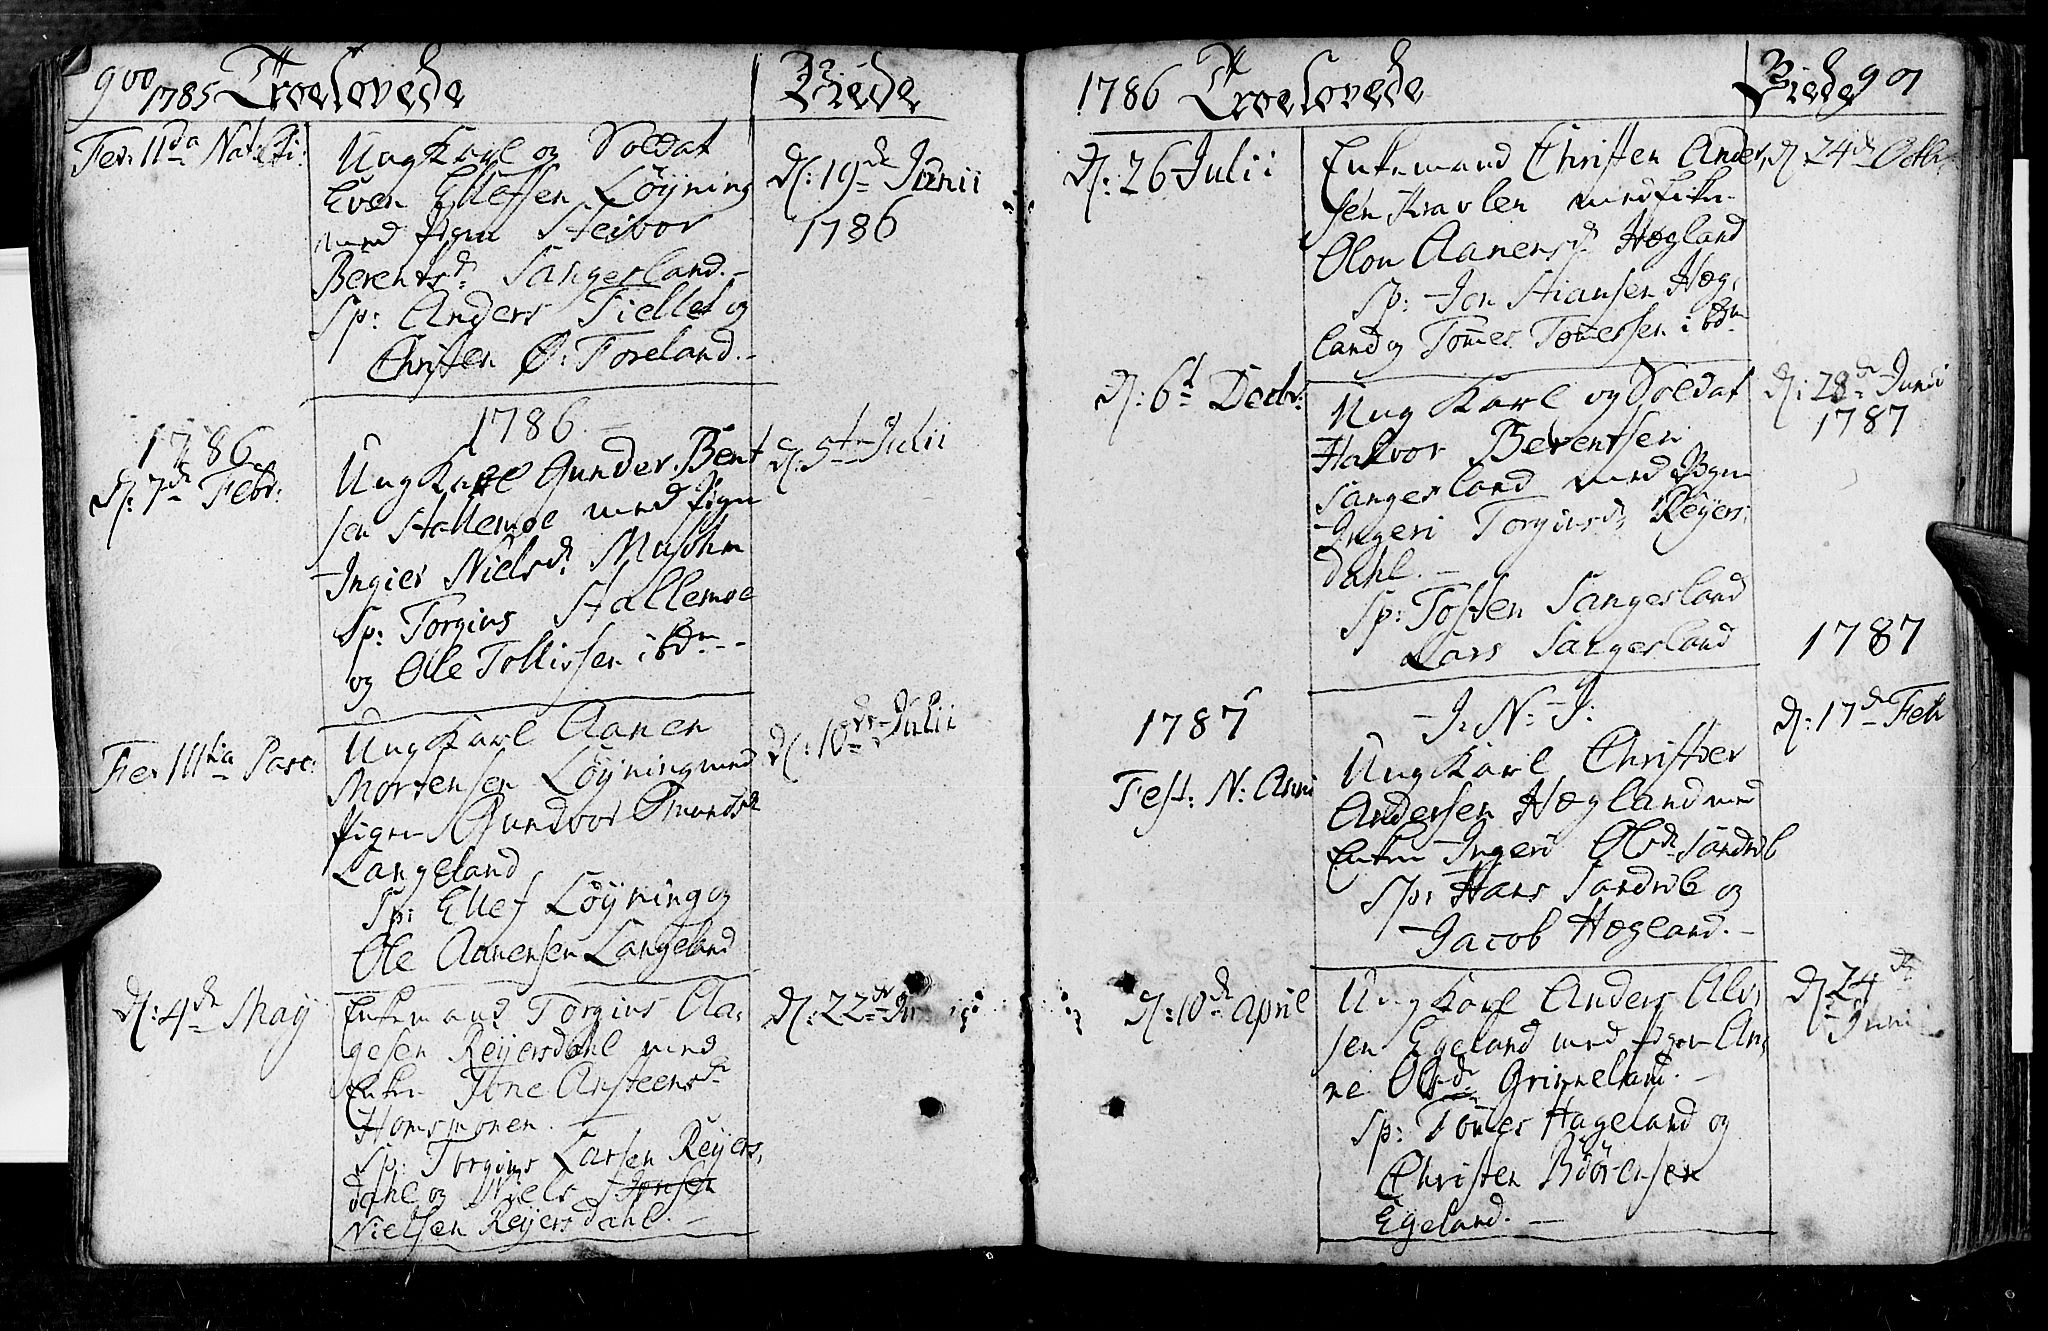 900 1785 Troelovede Viede
Fer: IIda Natali:
Ung Karl og Soldat
Even Ellefsen Löyning
med Pigen Steivor
Berentsd: Sangesland. -
Sp: Anders Fiellet og
Christen O: Foreland. -
d: 19de Junii
1786
1786
d: 7de Febr:
1786. -
Ung Karl Gunder Bent
sen Stallemoe med Pigen
Ingier Nielsd:
Sp: Torgius Stallemoe
og Ole Tollissen ibdm - -
d: 5te Julii
Fer IIItia Pasc:
Ung Karl Aanen
Mortensen Löyning med
Pigen Gundvor Omundsd
Langeland
Sp: Ellef Löyning og
Ole Aanensen Langeland
d: 10de Julii
d: 4de May
Enkemand Torgius Aa:
gesen Reyersdahl med
Enken Tone Ansteensd
Homsmonen. -
Sp: Torgius Larsen Reyers,
dahl og Niels Jonsen
Nielsen Reyersdahl. -
d: 22de
1786 Troelovede Viede 901
d: 26 Julii
Enkemand Christen Ander,
sen med Enken
Olou Aanensd Hægland
Sp: Jon Stiansen Hæg,
land og Tomes Tomessen ibdm
d: 24de Octbr
d: 6t Decbr:
Ung Karl og Soldat
Halvor Berentsen
Sangesland med Pigen
Ingeri Torgiusd, Reyers,
dahl. -
Sp: Tosten Sangesland
Lars Sangesland
d: 28de Junii
1787
1787
1787
Fest: N: Anni
J: N: J:
Ung Karl Christen
Andersen Hægland med
Enken Ingeri Olsd Sandvb
Sp: Hans Sandvb og
Jacob Hægland. -
d: 17de Feb
d: 10de April
Ung Karl Anders Alv,
sen Egeland med Pigen An,
ne Olsd Grinneland. -
Sp: Tomes Hageland og
Christen Biörensen
Egeland. -
d 24de
Junii